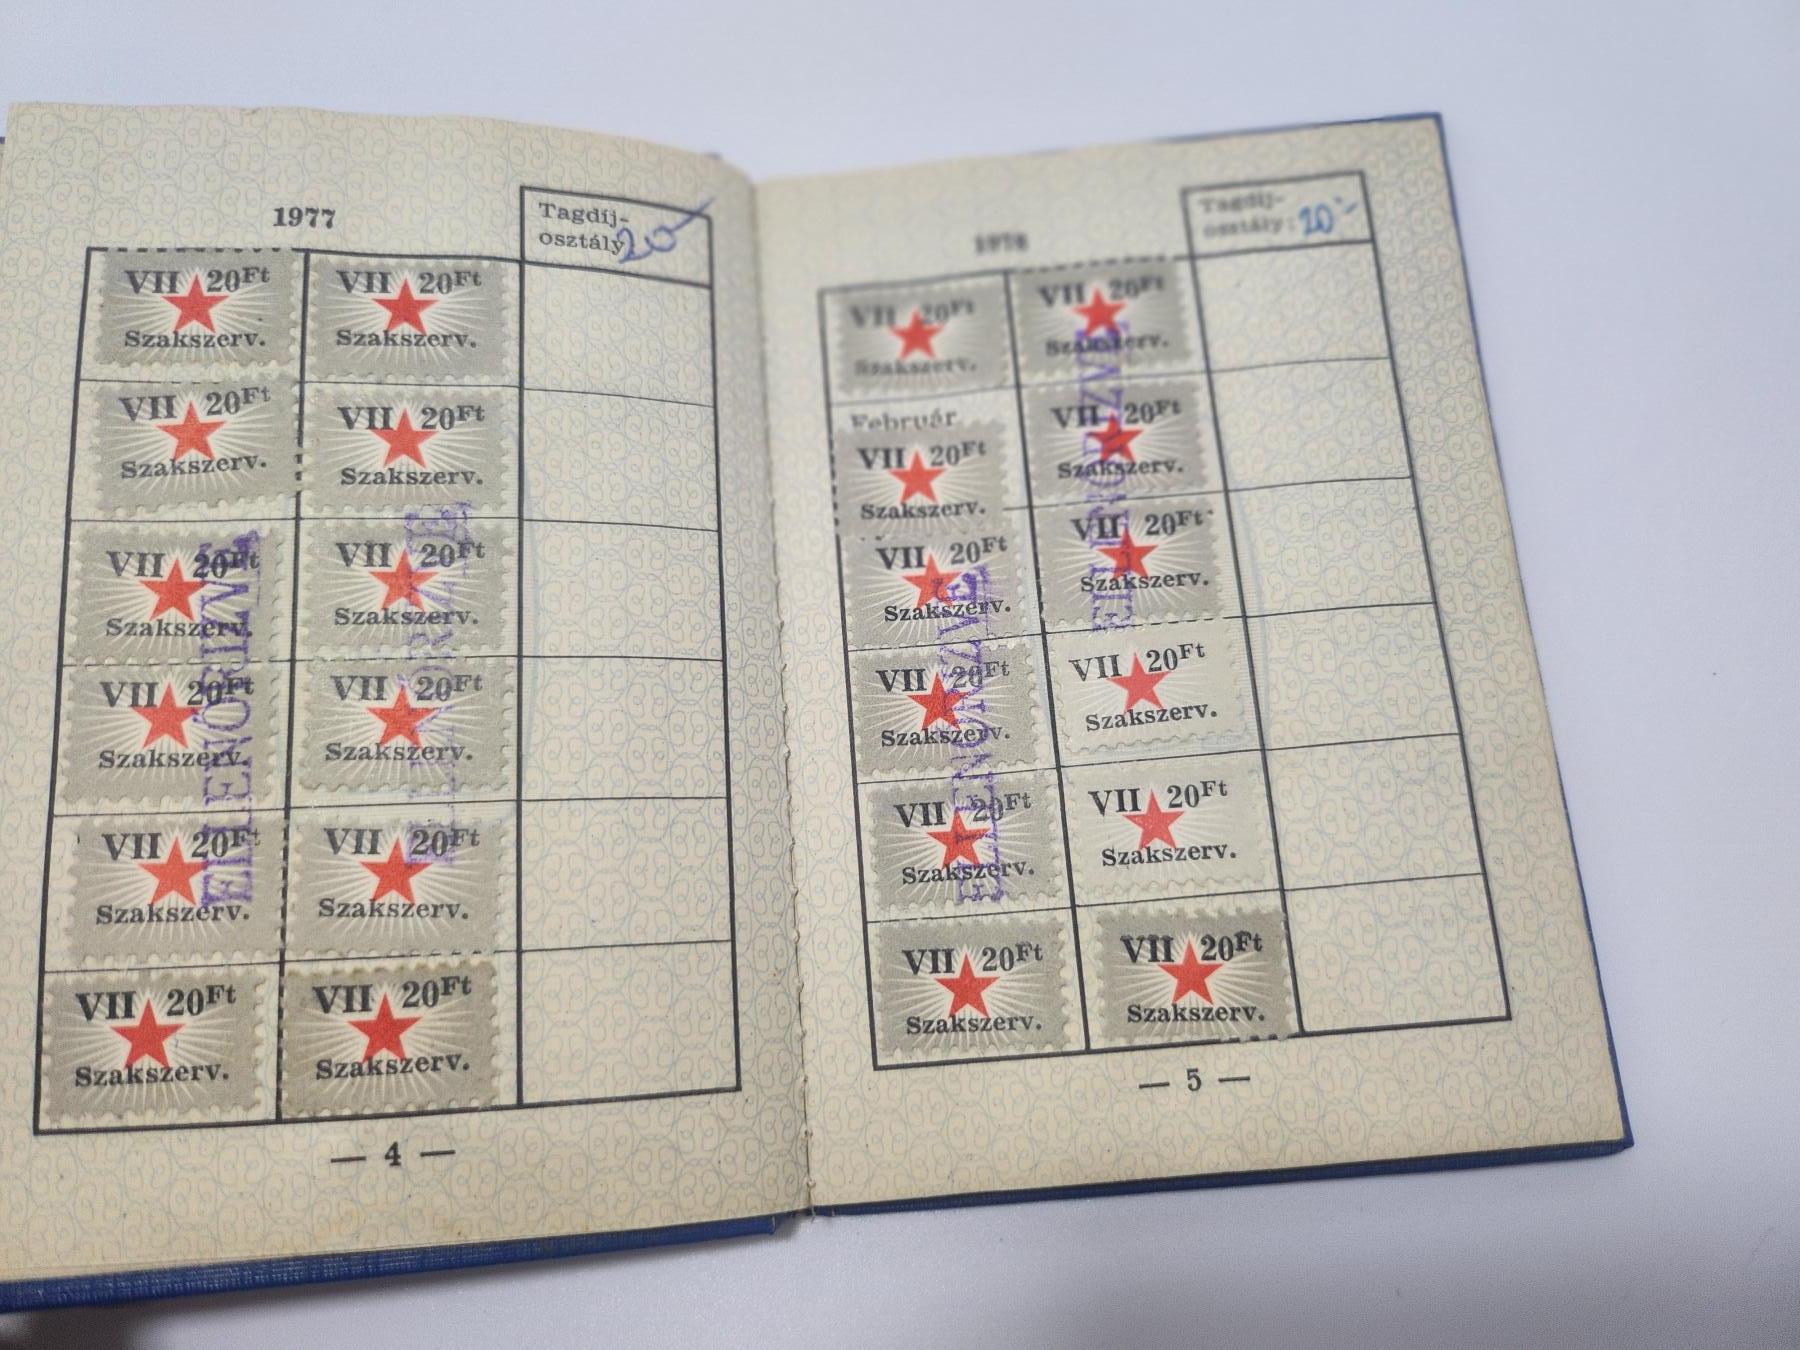 1977
Tagdíj-
osztály 20
VII 20Ft
Szakszerv.
VII 20Ft
Szakszerv.
VII 20Ft
Szakszerv.
VII 20Ft
Szakszerv.
VII 20Ft
Szakszerv.
VII 20Ft
Szakszerv.
VII 20Ft
Szakszerv.
VII 20Ft
Szakszerv.
VII 20Ft
Szakszerv.
VII 20Ft
Szakszerv.
VII 20Ft
Szakszerv.
VII 20Ft
Szakszerv.
ELLENŐRIZVE
ELLENŐRIZVE
— 4 —
1978
Tagdíj-
osztály: 20.-
VII 20Ft
Szakszerv.
VII 20Ft
Szakszerv.
Február
VII 20Ft
Szakszerv.
VII 20Ft
Szakszerv.
VII 20Ft
Szakszerv.
VII 20Ft
Szakszerv.
VII 20Ft
Szakszerv.
VII 20Ft
Szakszerv.
VII 20Ft
Szakszerv.
VII 20Ft
Szakszerv.
VII 20Ft
Szakszerv.
VII 20Ft
Szakszerv.
ELLENŐRIZVE
ELLENŐRIZVE
— 5 —